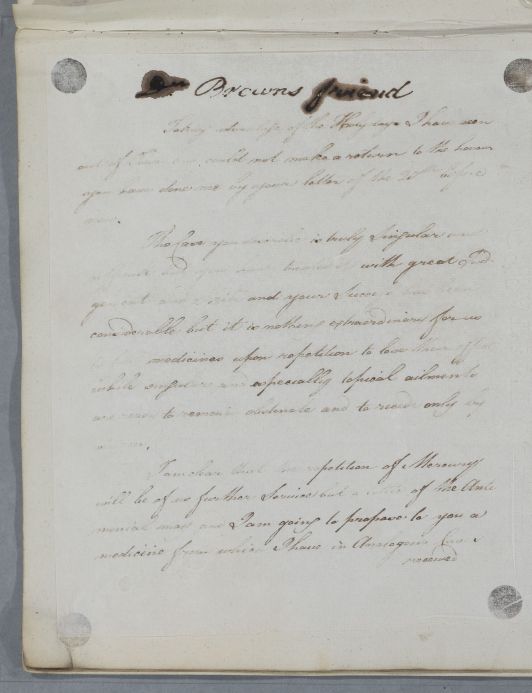 Browns friend
Taking advantage of the Holydays I have been
out of Town and could not make a return to the favour
you have done me by your letter of the 20th
The Case you describe is truly Singular and
and you have treated it with great Jud-
gement and and your Success has been
considerable but it is nothing extraordinary for us
to find medicines upon repetition to lose their effect
while singular and especially topical ailments
are ready to remain obstinate and to recede only by
I am clear that the repetition of Mercury
will be of no further Service but a of the Anti
monial may and I am going to propose to you a
medicine from which I have in Cases
received